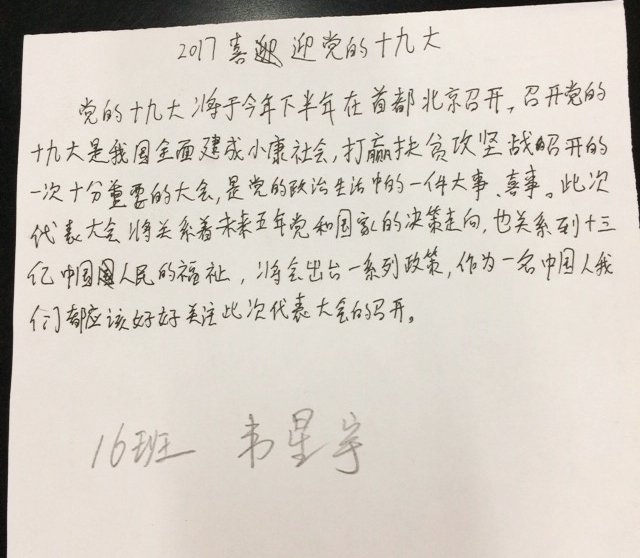 2017喜迎迎党的十九大
党的十九大将于今年下半年在首都北京召开。召开党的
十九大是我国全面建成小康社会,打赢扶贫攻坚战召开的
一次十分重要的大会,是党的政治生活中的一件大事、喜事。此次
代表大会将关系着未来五年党和国家的决策走向,也关系到十三
亿中国人民的福祉,将会出台一系列政策,作为一名中国人我
们都应该好好关注此次代表大会的召开。
16班 韦星宇